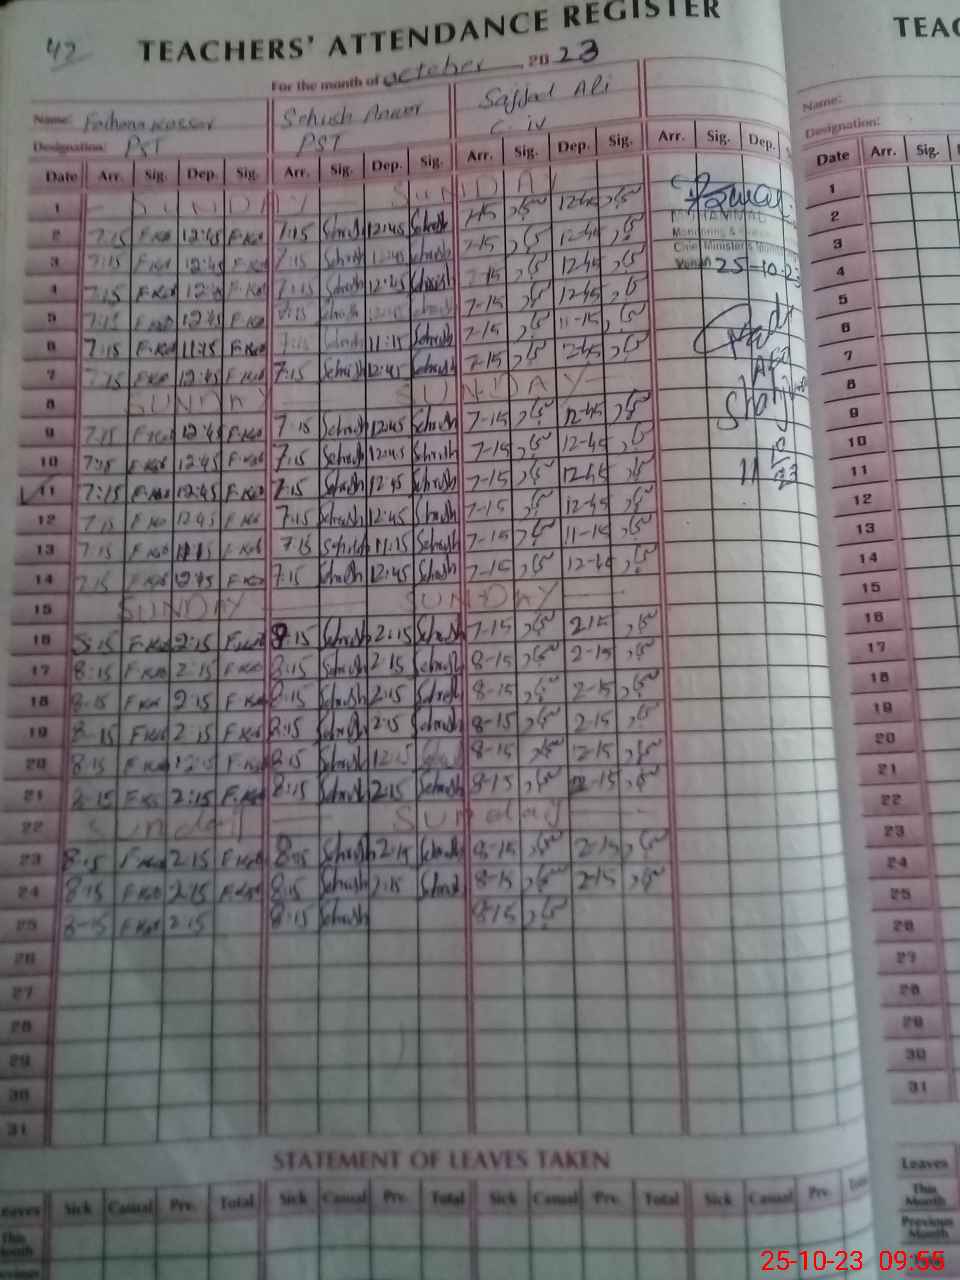 42
TEACHERS' ATTENDANCE REGISTER
For the month of october 2023
Name: Farhana Kossar Sehrish Anwar Sajjad Ali
Designation: PST PST C. iv
Date Arr. Sig. Dep. Sig. Arr. Sig. Dep. Sig. Arr. Sig. Dep. Sig. Arr. Sig. Dep.
1 SUNDAY SUNDAY
2 7:15 F.Kos 12:45 F.Kos 7:15 Sehrish 12:45 Sehrish 7-15 12-45
3 7:15 F.Kos 12:45 F.Kos 7:15 Sehrish 12:45 Sehrish 7-15 12-45
4 7:15 F.Kos 12:4 F.Kos 7:15 Sehrish 12:45 Sehrish 7-15 12-45
5 7:15 F.Kos 12:45 F.Kos 7:15 Sehrish 12:45 Sehrish 7-15 12-45
6 7:15 F.Kos 11:15 F.Kos 7:15 Sehrish 11:15 Sehrish 7-15 11-15
7 7:15 F.Kos 12:45 F.Kos 7:15 Sehrish 12:45 Sehrish 7-15 2-45
8 SUNDAY SUNDAY
9 7:15 F.Kos 12:45 F.Kos 7:15 Sehrish 12:45 Sehrish 7-15 12-45
10 7:15 F.Kos 12:45 F.Kos 7:15 Sehrish 12:45 Sehrish 7-15 12-45
11 7:15 F.Kos 12:45 F.Kos 7:15 Sehrish 12:45 Sehrish 7-15 12-45
12 7:15 F.Kos 12:45 F.Kos 7:15 Sehrish 12:45 Sehrish 7-15 12-45
13 7:15 F.Kos 11:15 F.Kos 7:15 Sehrish 11:15 Sehrish 7-15 11-15
14 7:15 F.Kos 12:45 F.Kos 7:15 Sehrish 12:45 Sehrish 7-15 12-45
15 SUNDAY SUNDAY
16 8:15 F.Kos 2:15 F.Kos 8:15 Sehrish 2:15 Sehrish 7-15 2-15
17 8:15 F.Kos 2:15 F.Kos 8:15 Sehrish 2:15 Sehrish 8-15 2-15
18 8:15 F.Kos 2:15 F.Kos 8:15 Sehrish 2:15 Sehrish 8-15 2-15
19 8:15 F.Kos 2:15 F.Kos 8:15 Sehrish 2:15 Sehrish 8-15 2-15
20 8:15 F.Kos 12:15 F.Kos 8:15 Sehrish 12:15 8-15 12-15
21 8:15 F.Kos 2:15 F.Kos 8:15 Sehrish 2:15 Sehrish 8-15 2-15
22 Sunday Sunday
23 8:15 F.Kos 2:15 F.Kos 8:15 Sehrish 2:15 Sehrish 8-15 2-15
24 8:15 F.Kos 2:15 F.Kos 8:15 Sehrish 2:15 Sehrish 8-15 2-15
25 8-15 F.Kos 2:15 8:15 Sehrish 8-15
26
27
28
29
30
31
MUHAMMAD
Monitoring &
Chief Minister's
25-10-23
11
10
23
STATEMENT OF LEAVES TAKEN
Leaves Sick Casual Pre. Total Sick Casual Pre. Total Sick Casual Pre. Total Sick Casual Pre.
This
Month
Previous
TEAC
Name:
Designation:
Date Arr. Sig.
1
2
3
4
5
6
7
8
9
10
11
12
13
14
15
16
17
18
19
20
21
22
23
24
25
26
27
28
29
30
31
Leaves
This
Month
Previous
Month
25-10-23 09:55